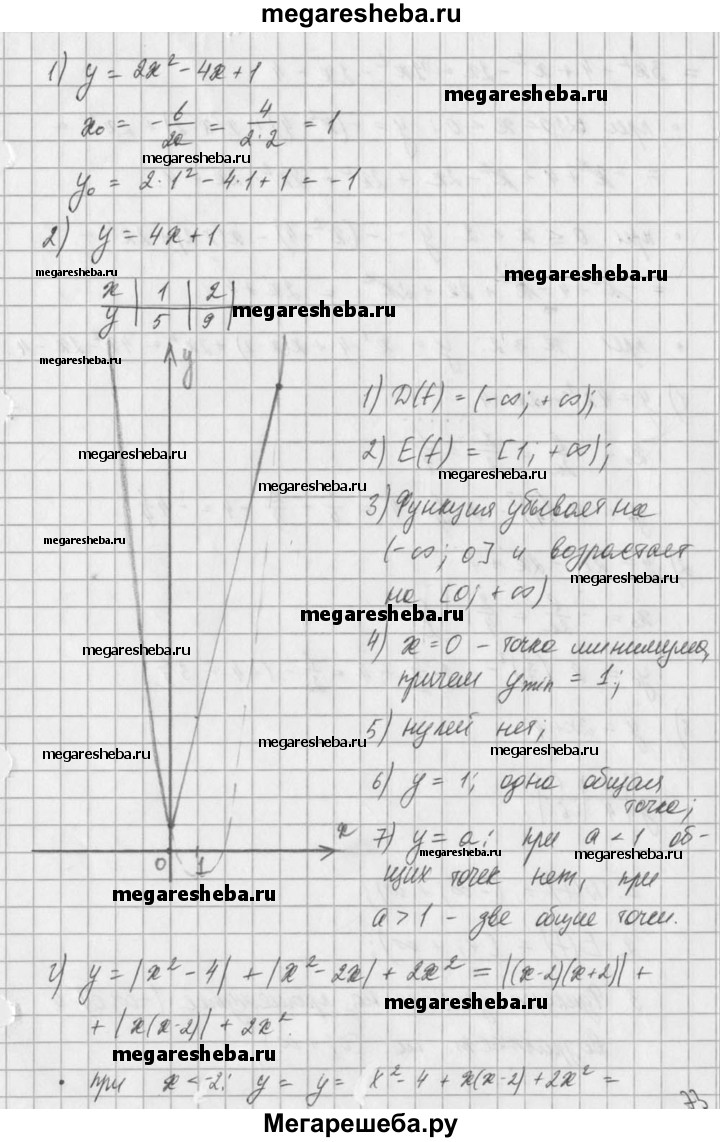 megaresheba.ru
1) y = 2x² - 4x + 1
megaresheba.ru
x₀ = - b/2a = 4/2·2 = 1
megaresheba.ru
y₀ = 2·1² - 4·1 + 1 = -1
2) y = 4x + 1
megaresheba.ru
megaresheba.ru
x | 1 | 2 |
megaresheba.ru
y | 5 | 9 |
megaresheba.ru
y
1) D(f) = (-∞; +∞);
megaresheba.ru
2) E(f) = [1; +∞);
megaresheba.ru
megaresheba.ru
3) Функция убывает на
megaresheba.ru
(-∞; 0] и возрастает
megaresheba.ru
на [0; +∞).
megaresheba.ru
4) x = 0 – точка минимума,
megaresheba.ru
причем y min = 1;
5) нулей нет;
megaresheba.ru
megaresheba.ru
megaresheba.ru
6) y = 1; одна общая
точка;
x
7) y = a: при a < 1 об-
megaresheba.ru
0 1
щих точек нет, при
megaresheba.ru
a > 1 – две общие точки.
г) y = |x² - 4| + |x² - 2x| + 2x² = |(x-2)(x+2)| +
megaresheba.ru
+ |x(x-2)| + 2x².
megaresheba.ru
• при x < -2: y = y = x² - 4 + x(x-2) + 2x² =
Мегарешеба.ру